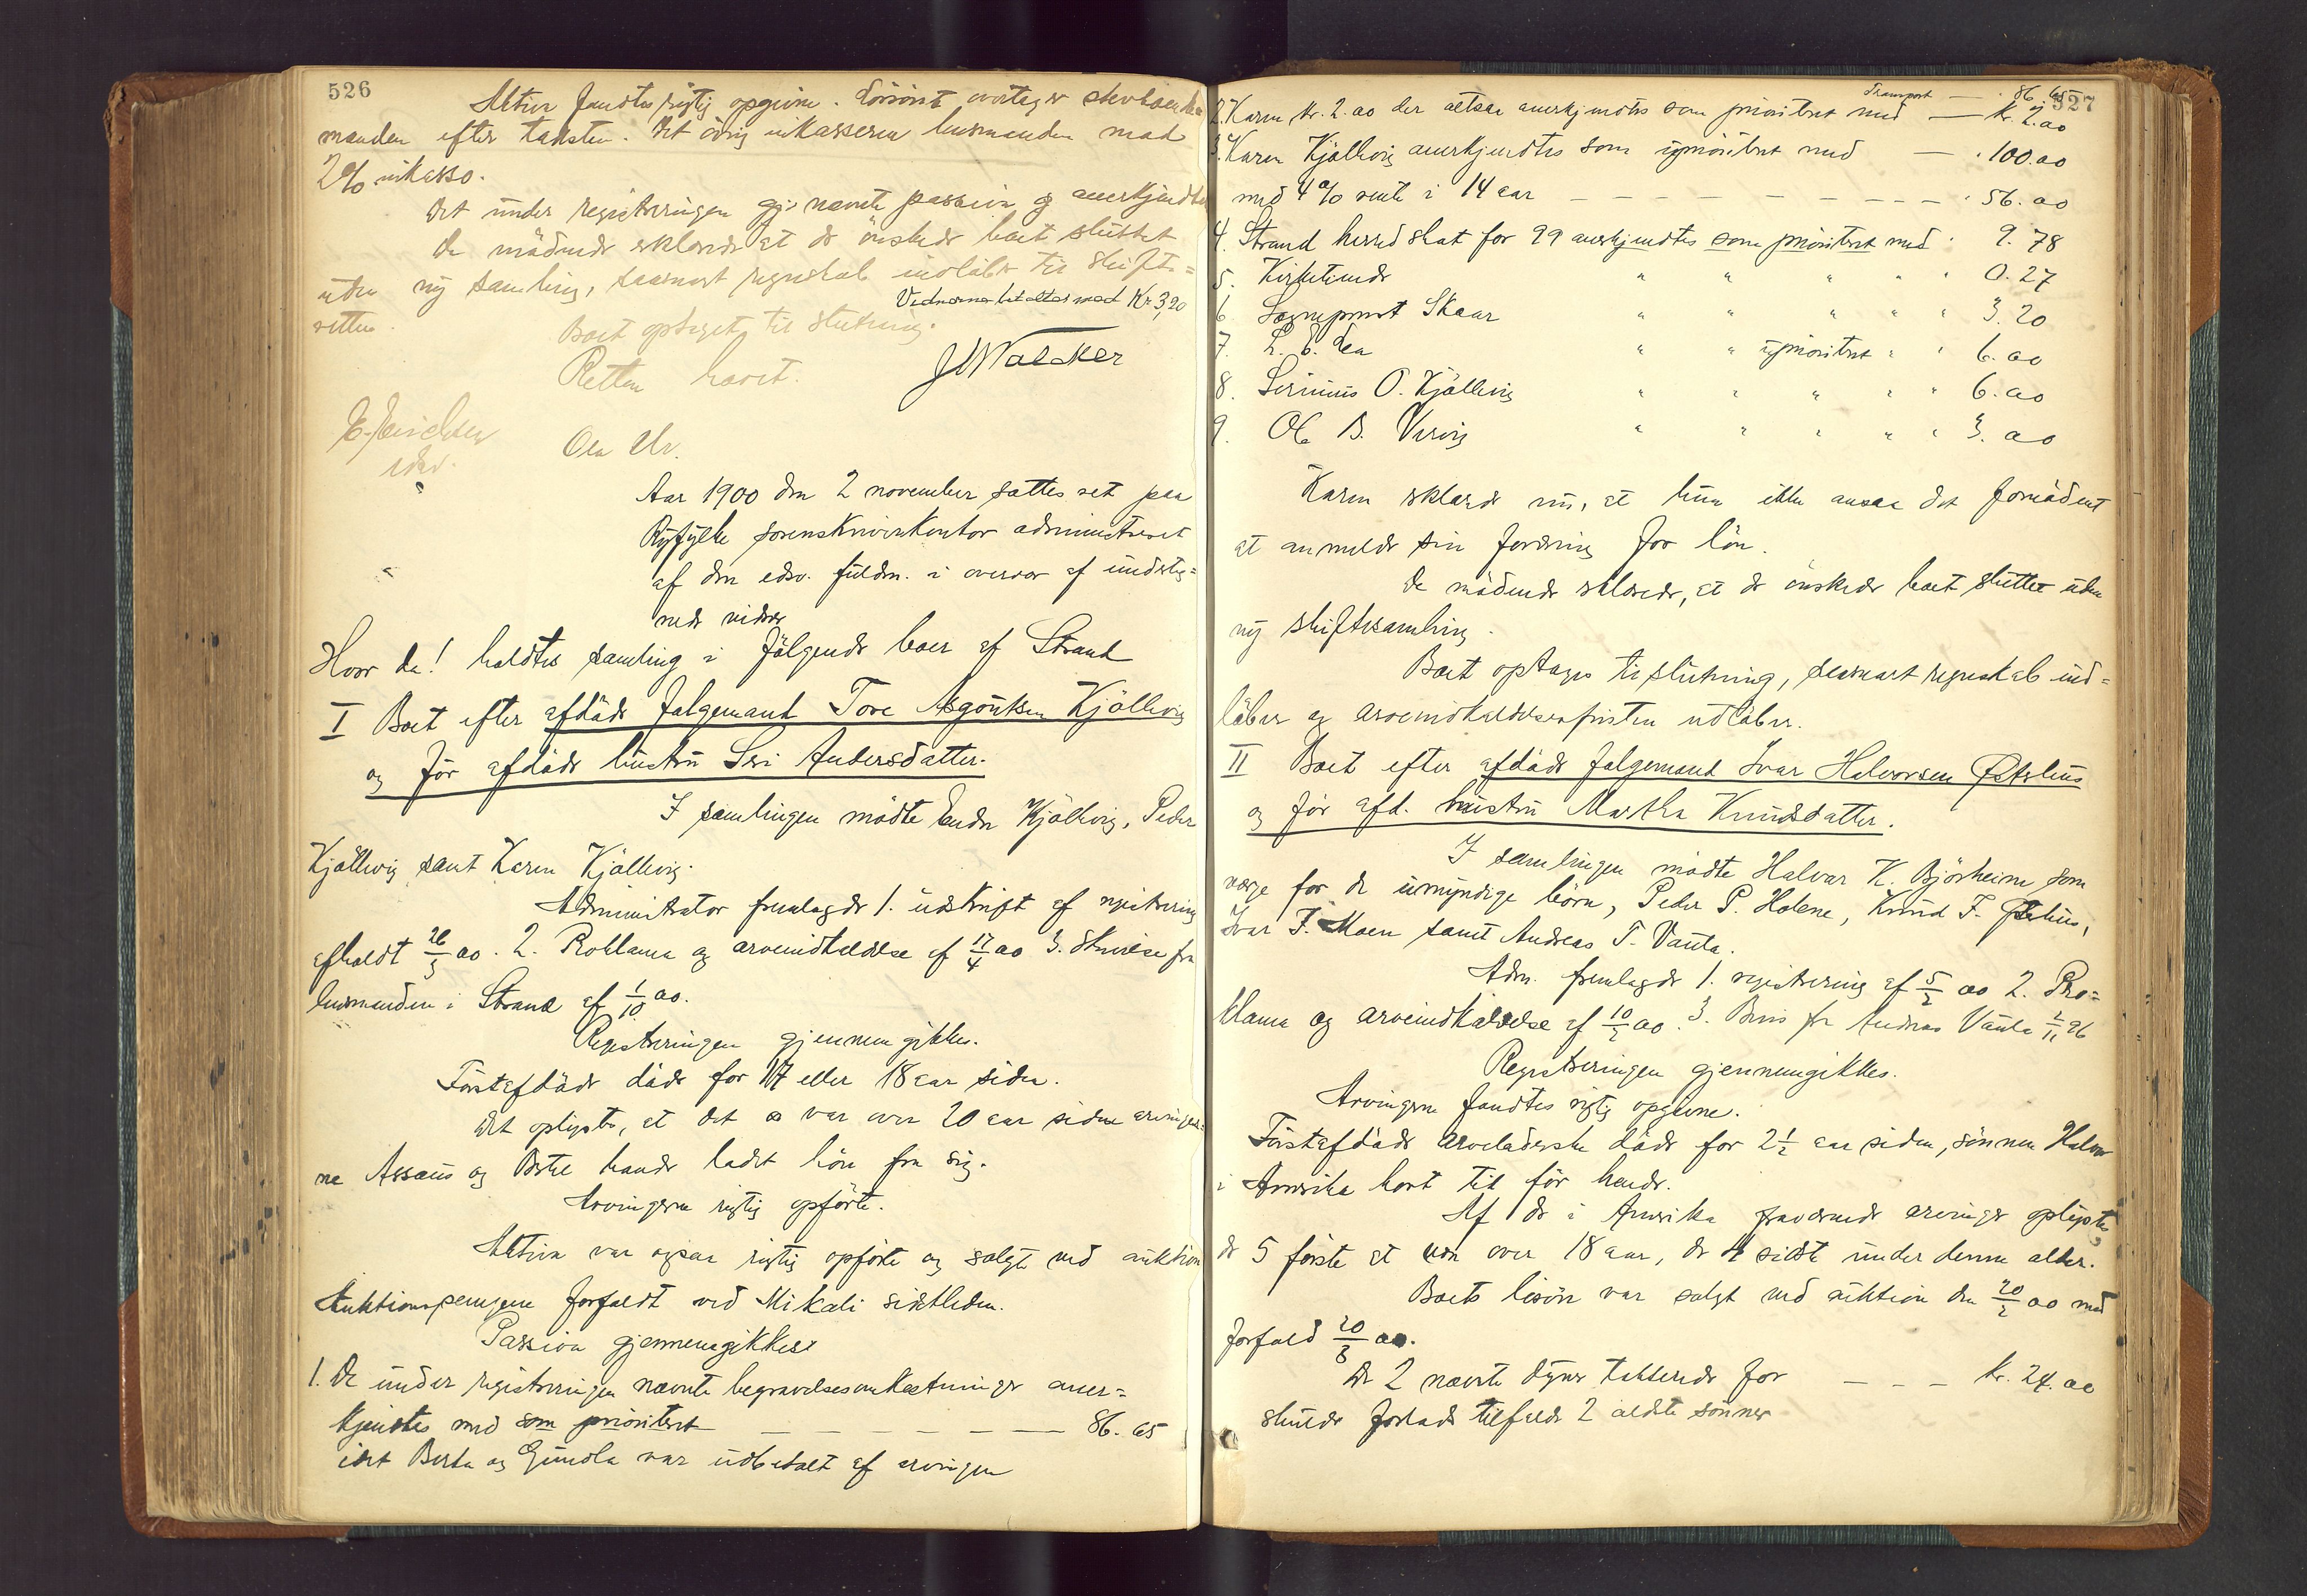 526
Aktiva fandtes rigtig opgivne. Lösöret overtages
manden efter taksten. Det övrig inkasserer lensmanden mod
2% inkasso.
Det under registreringen nævnte passiva anerkjendtes
De mödende erklærede at de önskede boet sluttet
uden ny samling, saasnart regnskab indlöber til skifte=
retten.
Vidnerne betaltes med Kr 3,20
Boet optages til slutning.
Retten hævet.
JWalcker
edsv.
Aar 1900 den 2 november sattes ret paa
Ryfylke sorenskriverkontor administreret
af den edsv. fuldm. i overvær af underteg=
nede vidner
Hvor da! holdtes samling i fölgende boer af Strand
I Boet efter afdöde folgemand Tore Asgoutsen Kjöllevig
og för afdöde hustru Siri Andersdatter.
I samlingen mödte Endre Kjöllevig, Peder
Kjöllevig samt Karen Kjöllevig.
Administrator fremlagde 1. udskrift af registrering
afholdt 26/3 00. 2. Proklama og arveindkaldelse af 17/4 00 3. Skrivelse fra
lensmanden i Strand af 1/10 00.
Registreringen gjennemgikkes.
Förstafdöde döde for 17 eller 18 aar siden.
Det oplystes, at det var over 20 aar siden arvinger=
ne Assaus og Bertel havde ladet höre fra sig.
Arvingerne rigtig opförte.
Aktiva var ogsaa rigtig opförte og solgte ved auktion
Auktionspengene forfaldt ved Mikali sidstleden.
Passiva gjennemgikkes
1. De under registreringen nævnte begravelsesomkostninger aner=
kjendtes med som prioriteret — — — — — — 86.65
idet Berta og Gundla var udbetalt af arvingen
527
Transport — 86.65
2. Karen Kr. 2.00 der altsaa anerkjendtes som prioriteret med — Kr. 2.00
3. Karen Kjöllevig anerkjendtes som uprioriteret med — 100.00
med 4% rente i 14 aar — — — — — — — 56.00
4. Strand herredskat for 99 anerkjendtes som prioriteret med 9.78
5. Kirketiende " " " " " 0.27
6. Sogneprest Skaar " " " " " 3.20
7. L. O. Lea " " uprioriteret " " 6.00
8. Serinius O. Kjöllevig " " " " " 6.00
9. Ole B. Vervig " " " " " 3.00
Karen erklærede nu, at hun ikke ansaa det fornödent
at anmelde sin fordring for lön.
De mödende erklærede, at de önskede boet sluttet uden
ny skiftesamling.
Boet optages til slutning, saasnart regnskab ind=
löber og arveindkaldelsesfristen udlöber.
II Boet efter afdöde folgemand Ivar Halvorsen Østerhus
og för afd. hustru Martha Knudsdatter.
I samlingen mödte Halvar K. Björheim som
verge for de umyndige börn, Peder P. Holene, Knud T. Østerhus,
Ivar J. Moen samt Andreas T. Vaula.
Adm. fremlagde 1. registrering af 5/2 00 2. Pro=
klama og arveindkaldelse af 10/2 00. 3. Brev fra Andreas Vaula 2/11 96
Registreringen gjennemgikkes.
Arvingerne fandtes rigtig opgivne.
Förstafdöde arveladerske döde for 2½ aar siden, sönnen Halvor
i Amerika bort tid för hende.
Af de i Amerika fraværende arvinger oplystes
de 5 förste at være over 18 aar, de 4 sidste under denne alder.
Boets lösöre var solgt ved auktion den 20/2 00 med
forfald 20/8 00.
De 2 nævnte dyner takserede for — — — kr. 24.00
skulde forlods tilfalde 2 ældste sönner